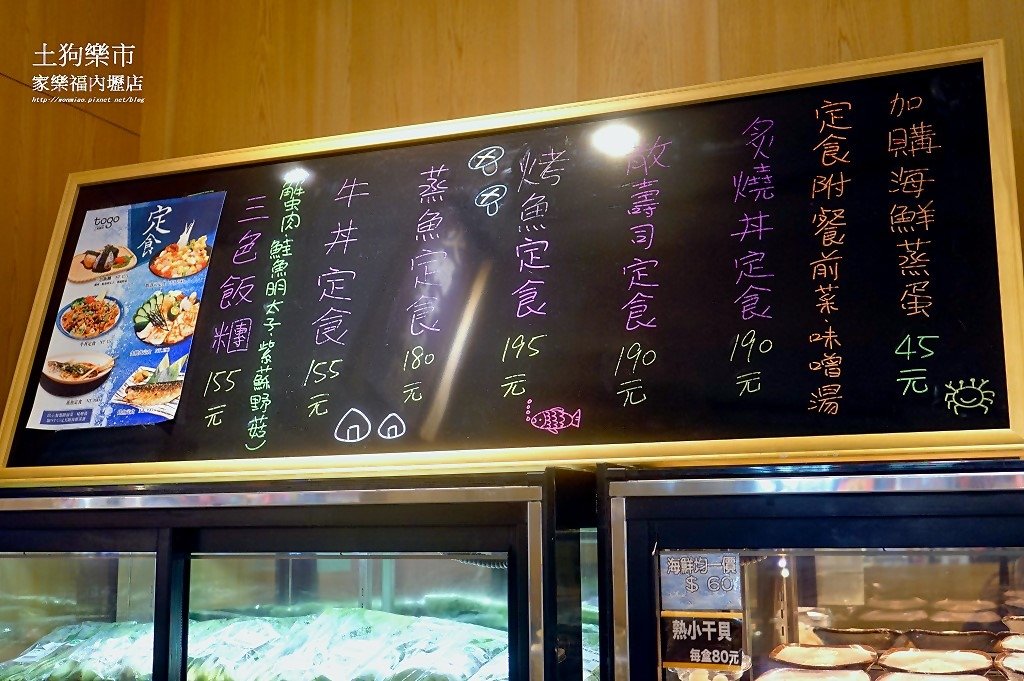 土狗樂市
家樂福內壢店
http://wonmiao.pixnet.net/blog
加購海鮮蒸蛋 45元
定食附餐前菜味噌湯
炙燒丼定食 190元
散壽司定食 190元
烤魚定食 195元
蒸魚定食 180元
牛丼定食 155元
三色飯糰 155元
(蟹肉.鮭魚明太子.紫蘇野菇)
togo
定食
海鮮均一價
$60
熟小干貝
每盒80元